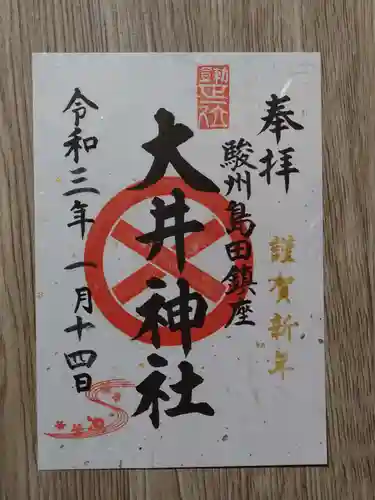 奉拝
謹賀新年
駿州島田鎮座
大井神社
令和三年一月十四日